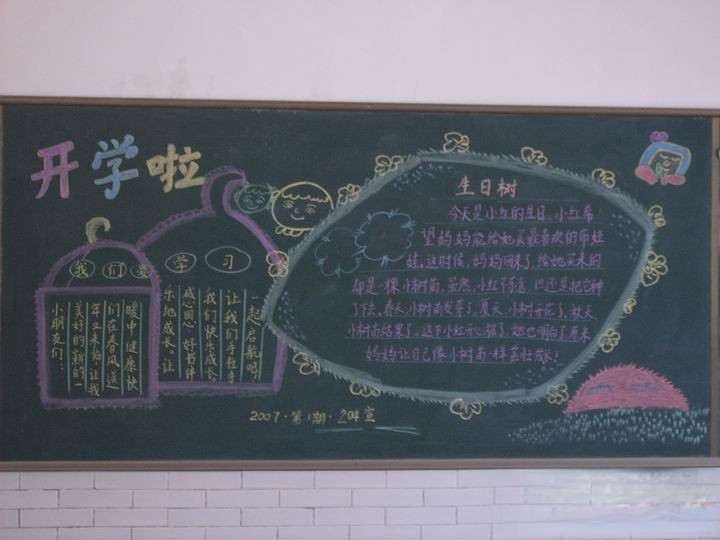 开学啦
我们爱学习
小朋友们：
美好的新的一
年又来临，让我
们在春风送
暖中，健康快
乐地成长。让
我们快乐成长。
让我们手拉手
一起启航吧！
生日树
今天是小红的生日，小红希
望妈妈能给她买最喜欢的布娃
娃，这时候，妈妈回来了，给她买来的
却是一棵小树苗，虽然，小红不愿意，但还是把它种
了下去。春天，小树苗发芽了，夏天，小树开花了，秋天
小树苗结果了。这下小红开心极了，她也明白了原来
妈妈让自己像小树苗一样茁壮成长！
2007·第1期·204宣